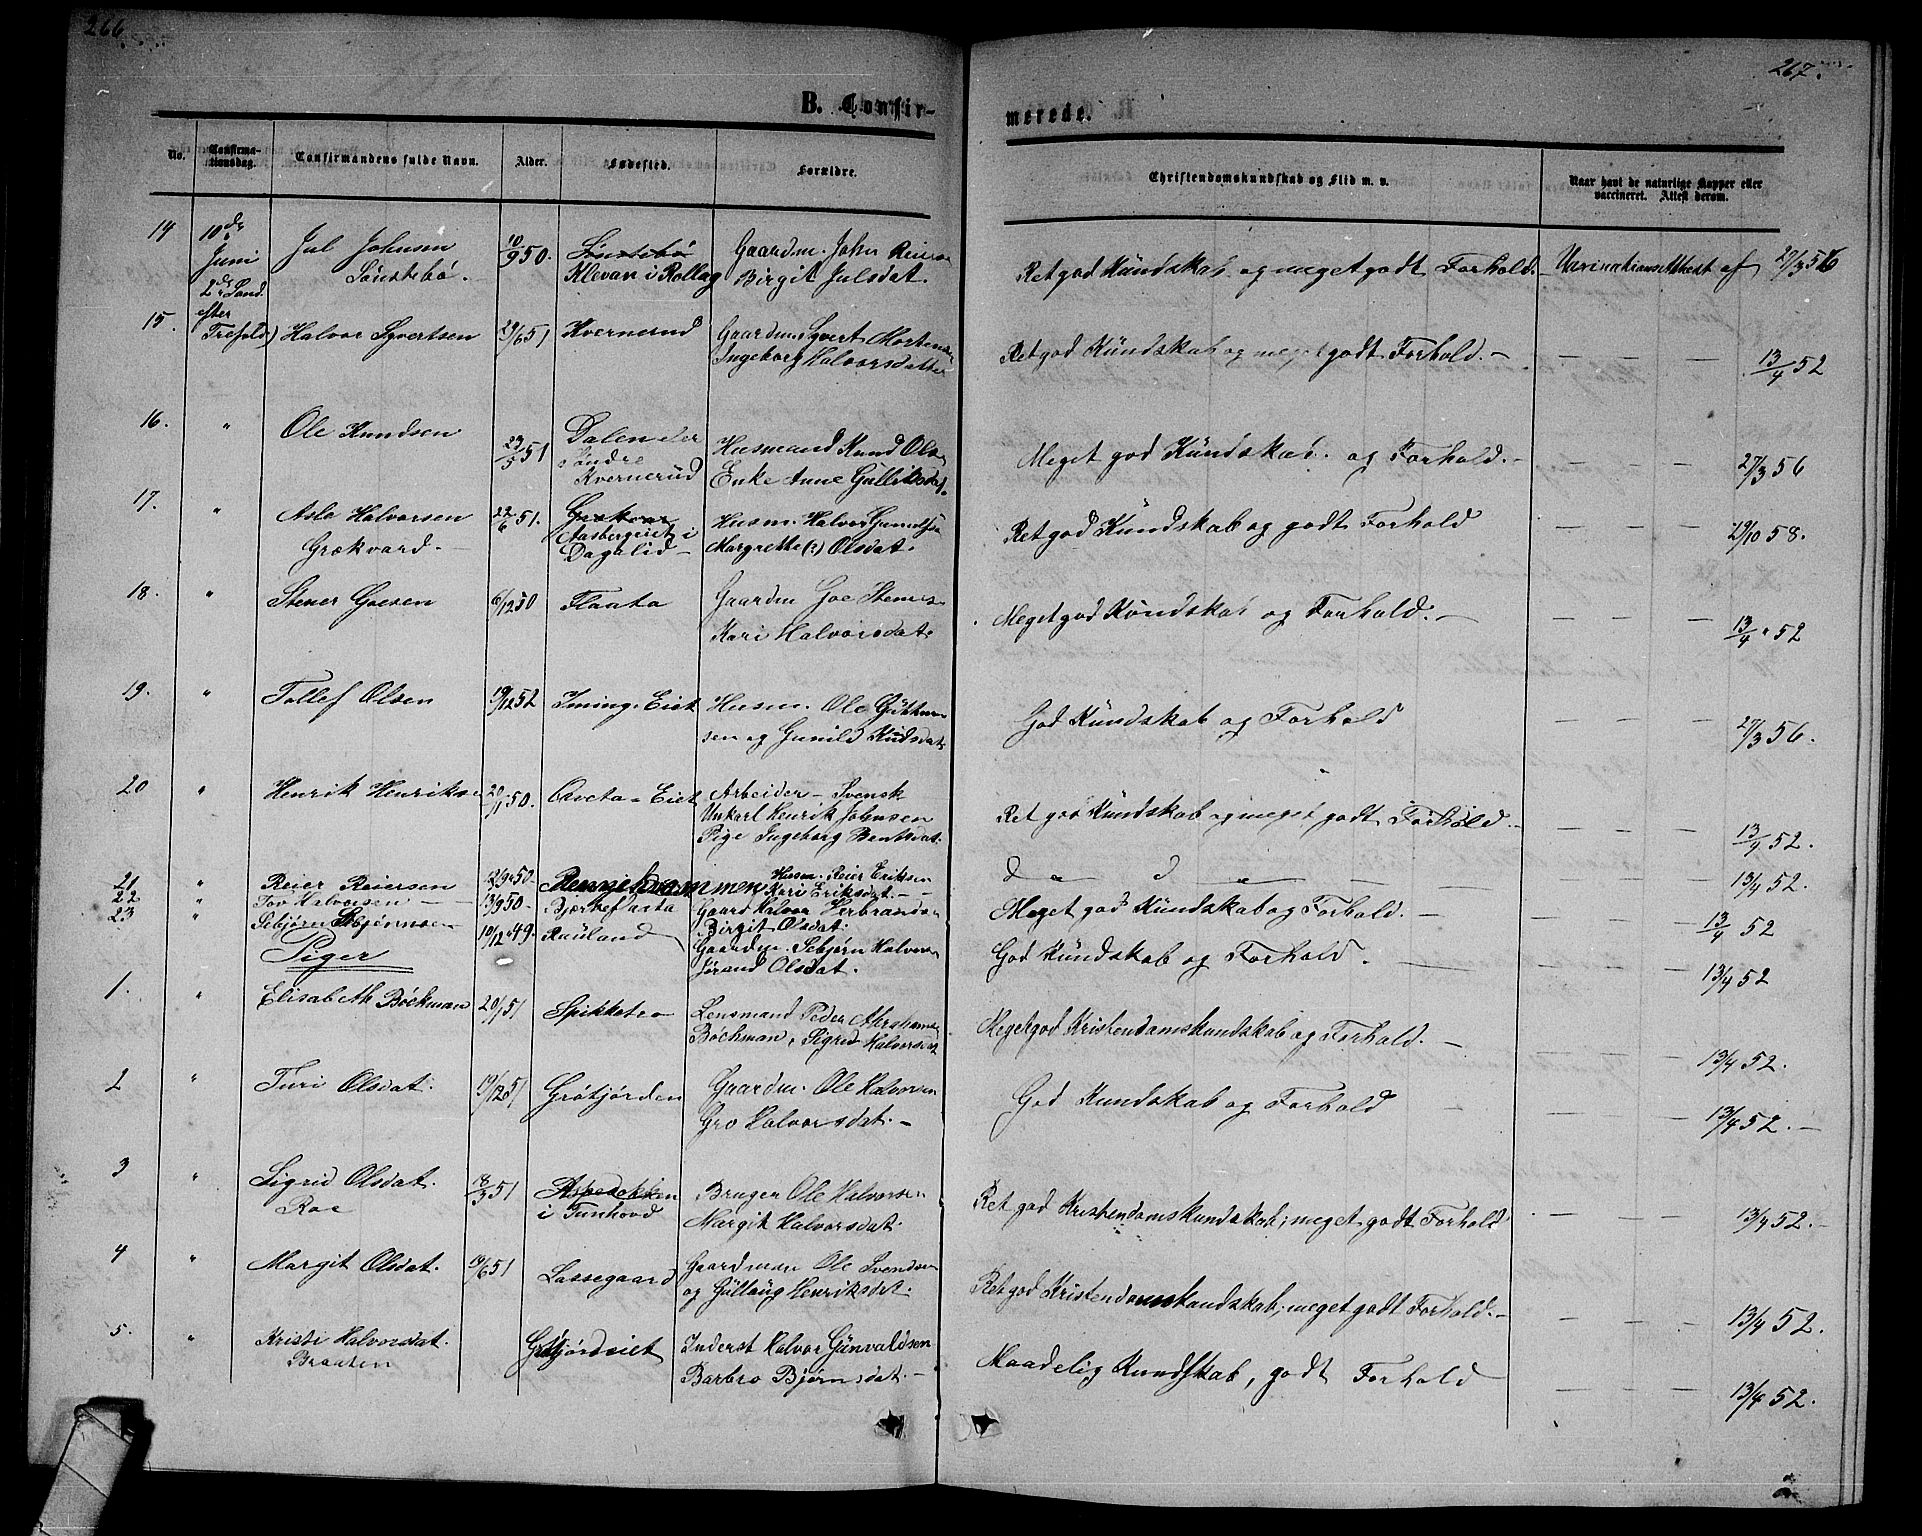 266
267.
B. Confir-
merede.
No. Confirma-tionsdag. Confirmandens fulde Navn. Alder. Fødested. Forældre. Christendomskundskab og Flid m. v. Naar havt de naturlige Kopper eller vaccineret. Attest derom.
14 10de Juni Jul Johnsen 10/9 50. Sönstebö Gaardm. John
Sönstebö. Klevan i Rollag Birgit Julsdat. Ret god Kundskab og meget godt Forhold. - Vaxinationsattest af 29/3 56
2den Sönd. efter Trefold)
15. Halvor Syvertsen 29/6 51 Kvernerud Gaardm Syvert Mortensen
Ingeborg Halvorsdatter Ret god Kündskab og meget godt Forhold. - — — — 13/4 52
16. " Ole Knudsen 23/5 51 Dalen under Husmand Knud Ols.
Søndre Kvernerud Enke Anne Gullriksdat. Meget god Kündskab og Forhold. - — — — 27/3 56
17. " Asle Halvorsen 22/6 51. Grøkvar Husm. Halvor
Grøkvard. - Aasbergeiet i Dagalid - Margrethe (?) Olsdat. Ret god Kundskab og godt Forhold — — — 29/10 58.
18. " Stener Goesen 6/12 50 Flaata Gaardm Goe Steners.
Kari Halvorsdat. Meget god Kündskab og Forhold. - — — — 13/4 52
19. " Tollef Olsen 19/12 52 Iming. Eiet Husm. Ole
sen og Gunild Knudsdat God Kündskab og Forhold — — — 27/3 56.
20 " Henrik Henriksen 20/1 50. Eiet Arbeider - Svensk
Unkarl Henrik Johnsen
Pige Ingeborg Bentsdat. Ret god Kündskab og meget godt Forhold. - — — — 13/4 52.
21 " Reier Reiersen 50. Husm. Reier Eriksen
Kari Eriksdat. - d o d o — — — 13/4 52.
22 " Tov Halvorsen - 13/9 50. Bjerkeflaata Gaard Halvor Herbrandsen
Birgit Olsdat. Meget god Kündskab og Forhold. - — — — 13/4 52
23 " Sebjørn Sebjørnsen 10/12 49. Rauland Gaardm. Sebjørn Halvorsen
Jørand Olsdat. God Kündskab og Forhold. - — — — 13/4 52
Piger
1. " Elisabeth Böckman 20/1 51 Spikketeo Lensmand Peder Abrahamsen
Böchman, Sigrid Halvorsdat Meget god Kristendomskundskab og Forhold. - — — — 13/4 52.
2 " Turi Olsdat. 19/12 51 Grötjörden Gaardm. Ole Halvorsen
Gro Halvorsdat. - God Kundskab og Forhold — — — 13/4 52. -
3 " Sigrid Olsdat. 18/3 51 Aspedokken Bruger Ole Halvorsen
Roe i Tunhovd Margit Halvorsdat. Ret god Kristendomskundskab; meget godt Forhold — — — 13/4 52. -
4 " Margit Olsdat. 19/6 51 Lassegaard Gaardman Ole Svendsen
og Güllaug Henriksdat. Ret god Kristendomskundskab; meget godt Forhold. - — — — 13/4 52.
5. " Kristi Halvorsdat. Grötjördeiet Inderst Halvor Günvaldsen
Braaten Barbro Bjørnsdat. - Maadelig Kundskab, godt Forhold — — — 13/4 52.